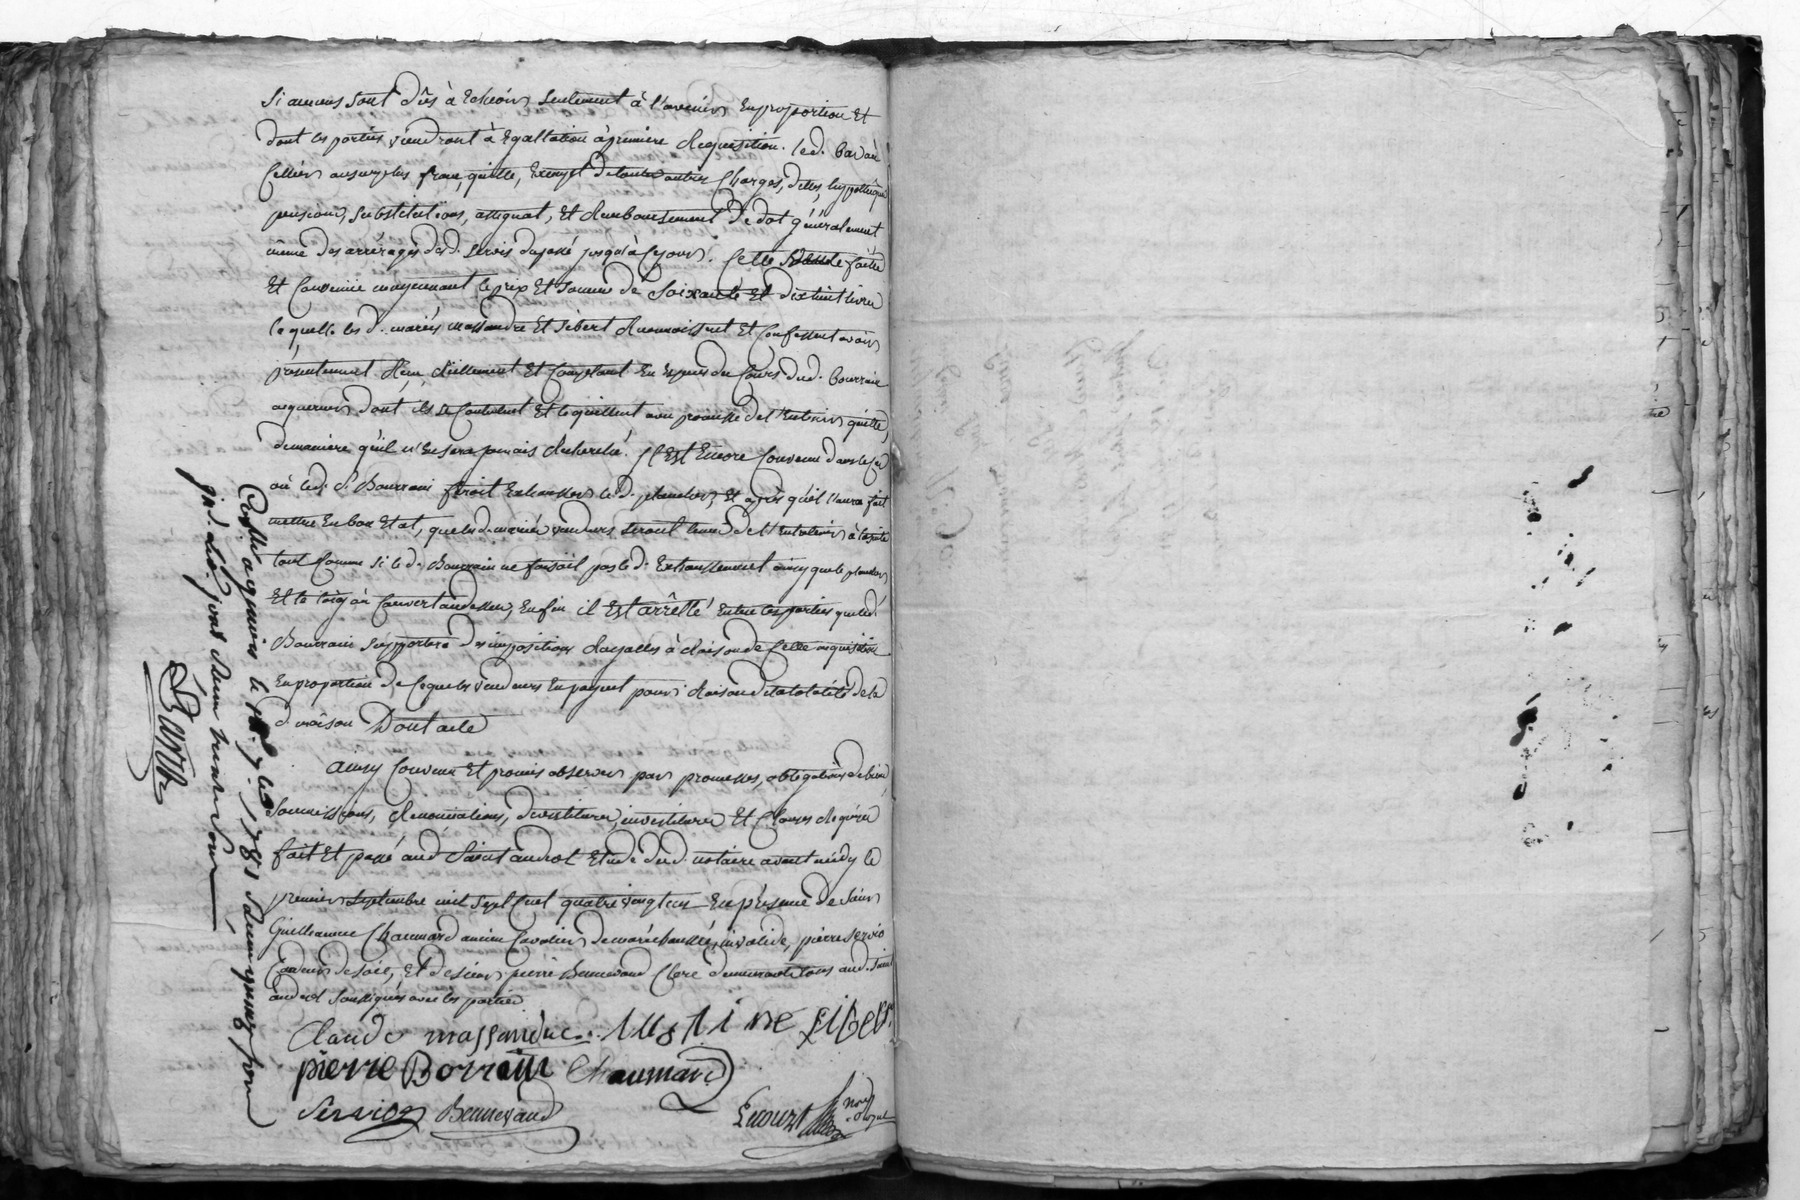 Si aucuns sont dûs à Echeoir seulement à l'avenir En proportion Et
dont les parties viendront à Egaltation à premiere Requisition. led.
Cellier aussy les franc, quitte, Exempt de toutes autres Charges, dettes, hypotheques
pensions, substitutions, assignat, Et Remboursement de dot généralement
même des arrérages desd. servis du passé jusqu'à Ce jour. Cette Vente faitte
Et Convenüe moyennant le prix Et somme de Soixante Et dix huit livres
laquelle les d. mariés massandre Et Sibert Reconnoissent Et Confessent avoir
présentement Reçu Réellement Et Comptant En Espèces du Cours dud. Bourrain
acquereur dont ils se Contentent Et le quittent avec promesse de l'En tenir quitte,
de maniere qu'il n'En sera jamais Recherché. Il Est Encore Convenu dans le Cas
où led. Sr. Bourrain feroit Exhausser le d. plancher, Et après qu'il l'aura fait
mettre En bon Etat, que les d. mariés vendeurs seront tenus de l'Entretenir à la suite
tout Comme si le d. Bourrain ne faisoit pas le d. Exhaussement ainsy que le plancher
Et le toit ou Couvert au dessus, Enfin il Est arrêtté Entre les parties que led.
Bourrain supportera des impositions Royalles à Raison de Cette acquisition
En proportion de Ce que les vendeurs En payent pour Raison de la totalité de la
d. maison Dont acte
Ainsy Convenu Et promis observer par promesses, obligations de biens
Soumissions, Renonciations, devestiture, investiture Et Clauses Requises
fait Et passé aud. Saint andeol Etude dud. notaire avant midy le
premier septembre mil sept Cent quatre vingt un En présence de Sieur
Guillaume Chaumard ancien Cavalier de maréchaussée, invalide, pierre servio
de soie, Et de sieur pierre Bennevaud Clerc demeurants tous aud. Saint
andeol soussignés avec les parties
Claude massandre justine sibert
pierre Borrain Chaumard
Servio Bennevaud
not. Royal
1781